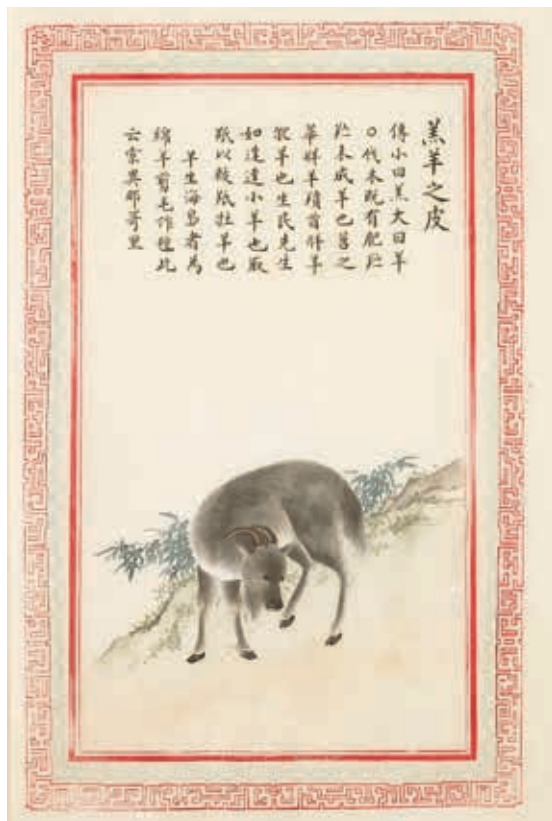 羔羊之皮
傳小曰羔大曰羊
○伐木既有肥羜
羜未成羊也苕之
華牂羊墳首牂羊
牝羊也生民先生
如達達小羊也取
羝以軷羝牡羊也
羊生海島者為
綿羊剪毛作氊此
云索異那哥里